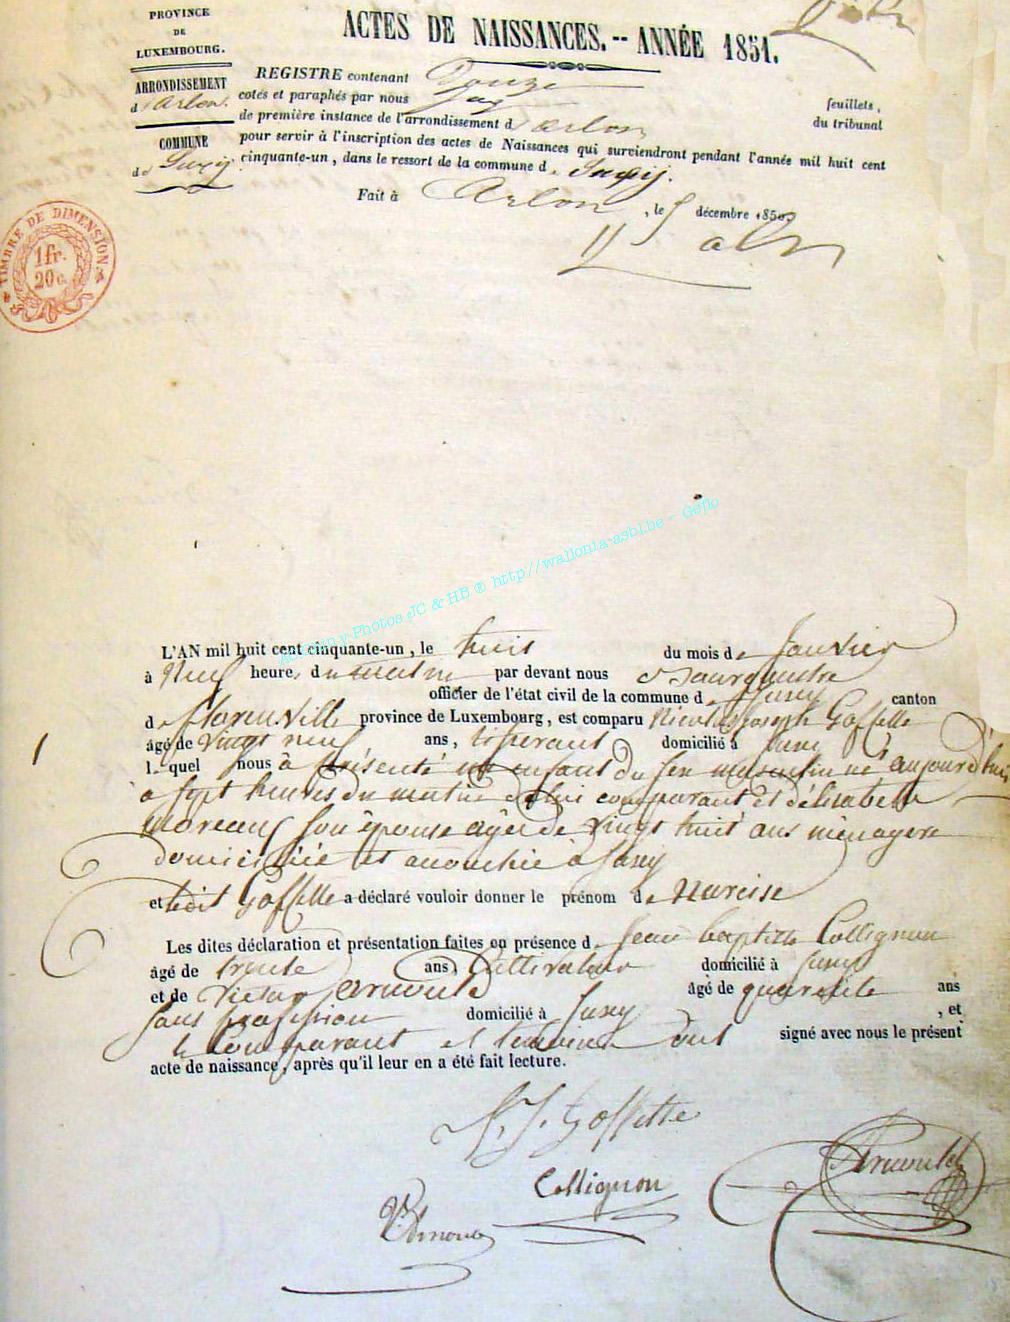 PROVINCE
DE
LUXEMBOURG.
ARRONDISSEMENT
d'Arlon.
COMMUNE
de Suxy.
ACTES DE NAISSANCES. -- ANNÉE 1851.
REGISTRE contenant Douze feuillets,
cotés et paraphés par nous du tribunal
de première instance de l'arrondissement d'arlon
pour servir à l'inscription des actes de Naissances qui surviendront pendant l'année mil huit cent
cinquante-un, dans le ressort de la commune de Suxy.
Fait à Arlon, le 5 décembre 1850
TIMBRE DE DIMENSION
1 fr.
20 c.
Photos JC & HB ® http//wallonia-asbl.be - Geflo
1
L'AN mil huit cent cinquante-un, le huit du mois de Janvier
à Neuf heures du matin par devant nous Bourguemestre
officier de l'état civil de la commune de Suxy canton
de florenville province de Luxembourg, est comparu Nicolas Joseph Goffette
âgé de vingt neuf ans, tisserant domicilié à Suxy
lequel nous à présenté un enfant du sex masculin né aujourd'hui
à sept heures du matin de lui comparant et d'élisabeth
moreaux son épouse agée de vingt huit ans ménagere
domiciliée et accouchée à Suxy
et ledit Goffette a déclaré vouloir donner le prénom de Narcise
Les dites déclaration et présentation faites en présence de Jean baptiste Collignon
âgé de trente ans, Cultivateur domicilié à Suxy
et de Victor arnould âgé de quarente ans
sans profession domicilié à Suxy, et
le Comparant et temoins ont signé avec nous le présent
acte de naissance, après qu'il leur en a été fait lecture.
N. J. Goffette
Collignon
Arnould
V. Arnould